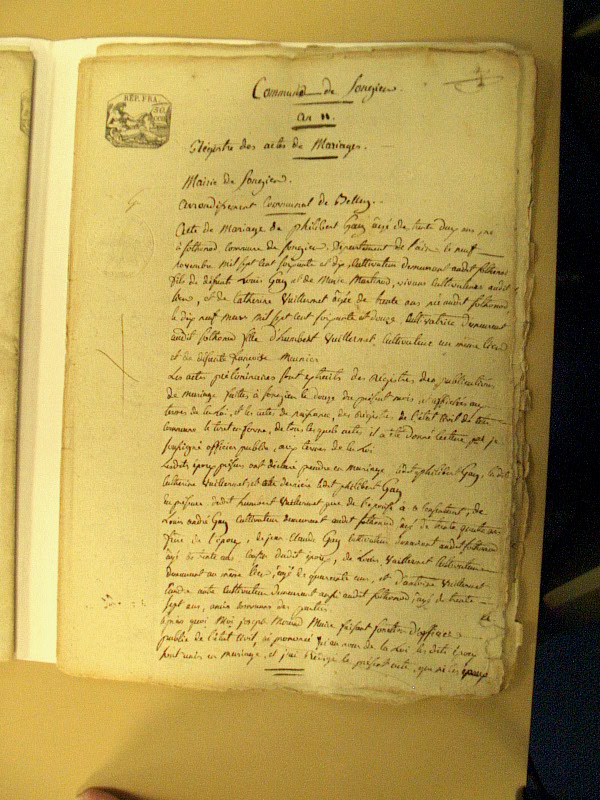 RÉP. FRA.
Commune de Songieu.
an 11.
Régistre des actes de Mariages.
Mairie de Songieu.
arrondissement Communal de Belley.
Acte de Mariage de philibert Gay âgé de trente deux ans, né
à fothonod commune de Songieu, Département de l'ain le neuf
novembre mil sept cent soixante et dix, Cultivateur demeurant audit fothonod
fils de défunt Louis Gay et de Marie Martinod, vivans Cultivateurs audit
lieu, et de Catherine Vuillermet âgée de trente ans née audit fothonod
le dix neuf mars mil sept cent soixante et douze Cultivatrice demeurant
audit fothonod fille d'humbert Vuillermet, Cultivateur au même lieu
et de défunte françoise Meunier
Les actes préliminaires sont extraits des Régistres des publications
de mariage faittes à Songieu le douze du présent mois, et affichées aux
termes de la Loi, et les actes de naissance, des Régistres de l'état Civil de
commune le tout en forme, de tous les quels actes il a été donné lecture, par je
soussigné officier public, aux termes de la Loi
Lesdits époux présens ont déclaré prendre en mariage ledit philibert Gay,
Catherine Vuillermet; et cette dernière ledit philibert Gay
En présence dudit humbert Vuillermet père de l'épouse
Gay Cultivateur demeurant audit fothonod âgé de trente quatre ans
frère de l'époux, de jean Claude Gay Cultivateur demeurant audit fothonod
âgé de trente ans dudit époux, de Louis Vuillermet Cultivateur
demeurant au même lieu, âgé de quarante un, et d'antoine Vuillermet
Cultivateur demeurant aussi audit fothonod, âgé de trente
sept ans, amis communs des parties
après quoi Moi joseph Maire faisant fonction d'officier
public de l'état civil, ai prononcé qu'au nom de la Loi les dits époux
sont unis en mariage, et j'ai Rédigé le présent acte, que ni les époux